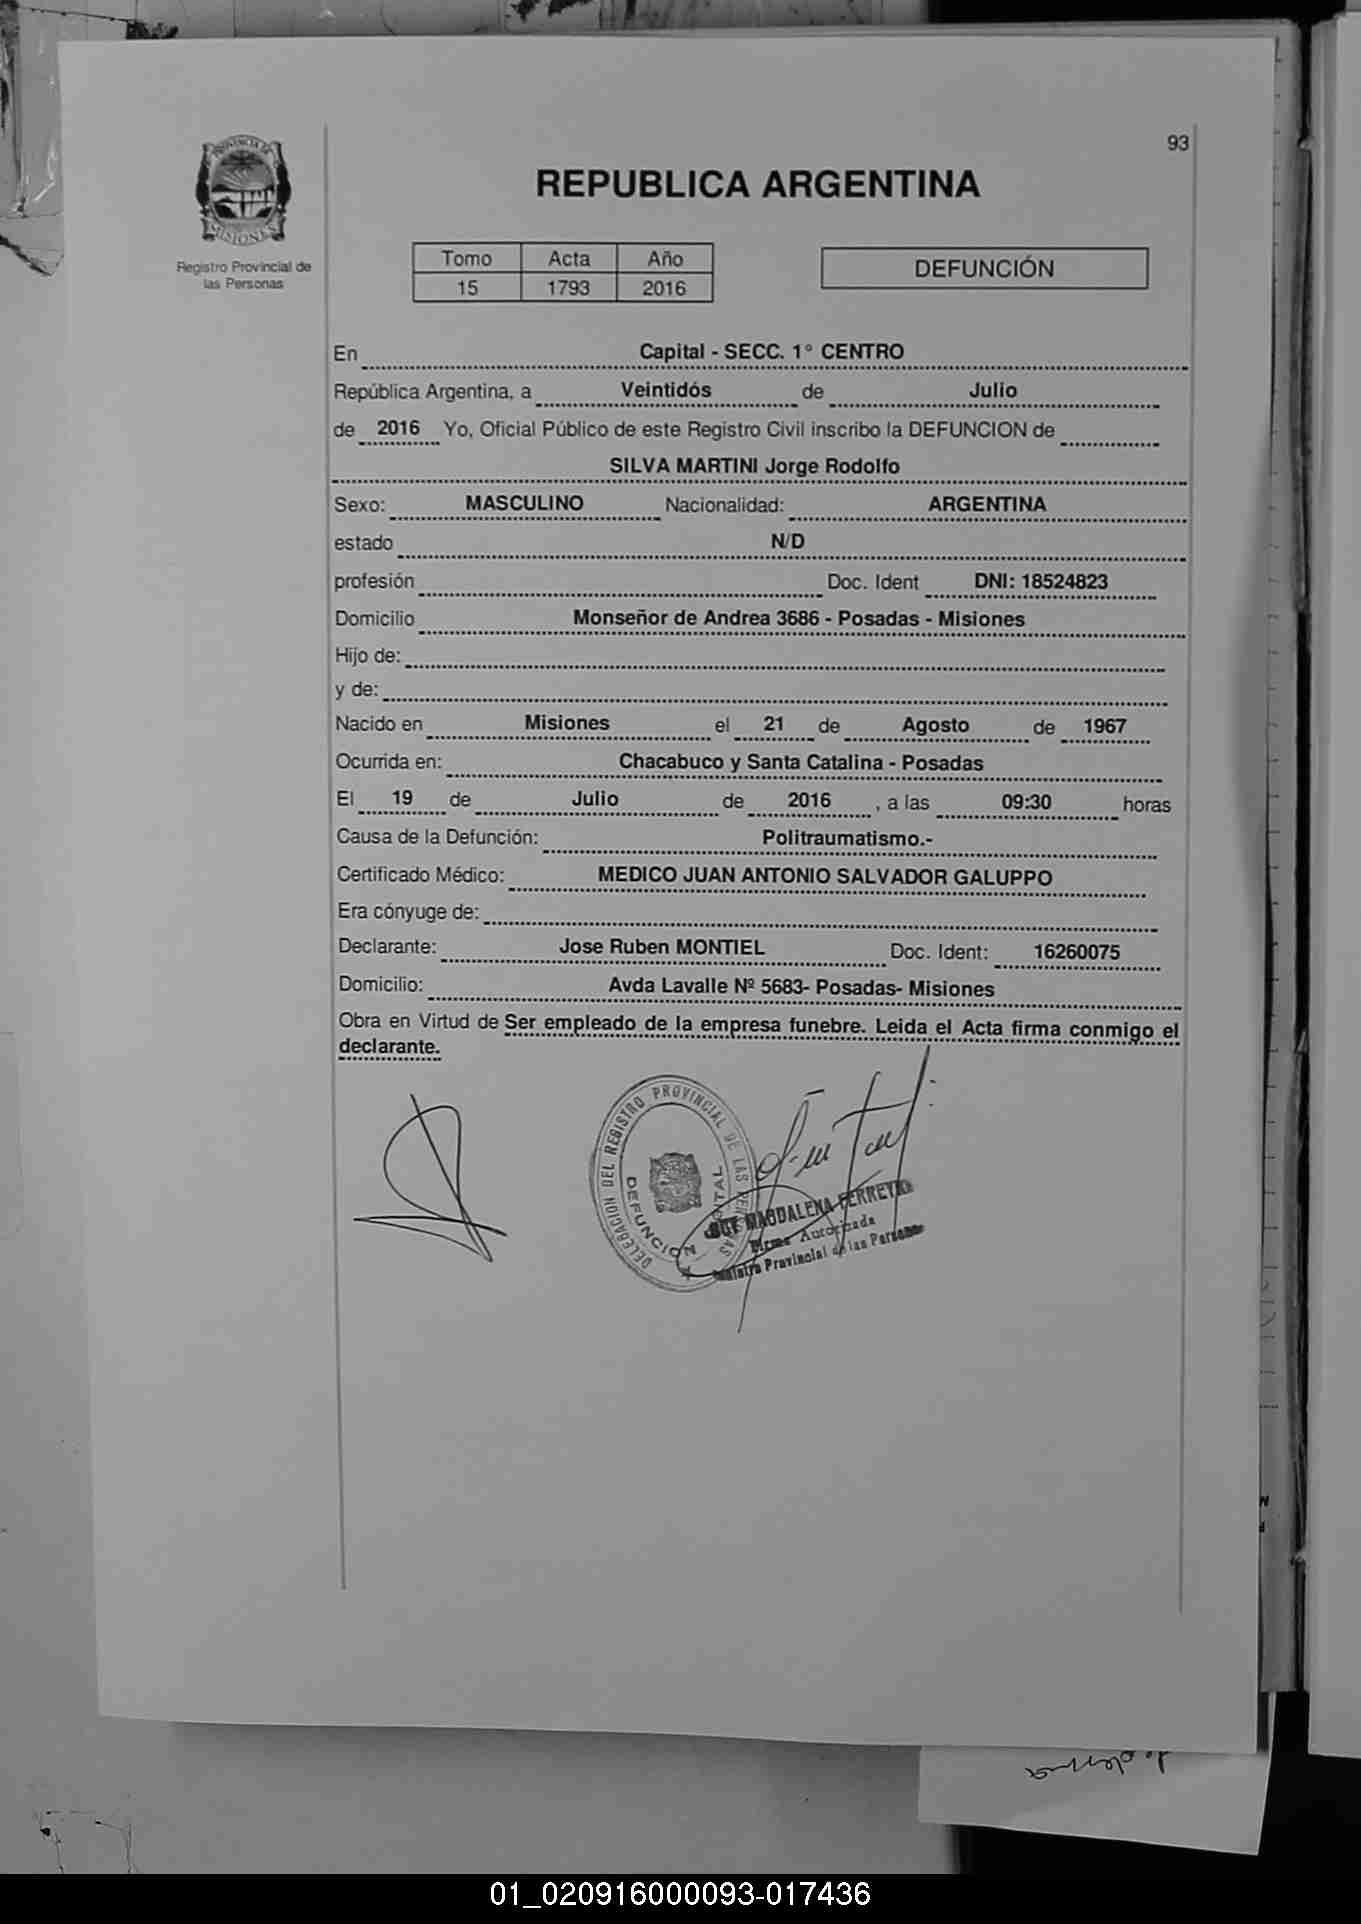 93
PROVINCIA DE
MISIONES
Registro Provincial de
las Personas
REPUBLICA ARGENTINA
Tomo Acta Año
15 1793 2016
DEFUNCIÓN
En Capital - SECC. 1° CENTRO
República Argentina, a Veintidós de Julio
de 2016 Yo, Oficial Público de este Registro Civil inscribo la DEFUNCION de
SILVA MARTINI Jorge Rodolfo
Sexo: MASCULINO Nacionalidad: ARGENTINA
estado N/D
profesión Doc. Ident DNI: 18524823
Domicilio Monseñor de Andrea 3686 - Posadas - Misiones
Hijo de:
y de:
Nacido en Misiones el 21 de Agosto de 1967
Ocurrida en: Chacabuco y Santa Catalina - Posadas
El 19 de Julio de 2016 , a las 09:30 horas
Causa de la Defunción: Politraumatismo.-
Certificado Médico: MEDICO JUAN ANTONIO SALVADOR GALUPPO
Era cónyuge de:
Declarante: Jose Ruben MONTIEL Doc. Ident: 16260075
Domicilio: Avda Lavalle Nº 5683- Posadas- Misiones
Obra en Virtud de Ser empleado de la empresa funebre. Leida el Acta firma conmigo el
declarante.
DELEGACION DEL REGISTRO PROVINCIAL DE LAS PERSONAS
DEFUNCION
MAGDALENA FERREYRA
Firma Autorizada
Registro Provincial de las Personas
01_020916000093-017436